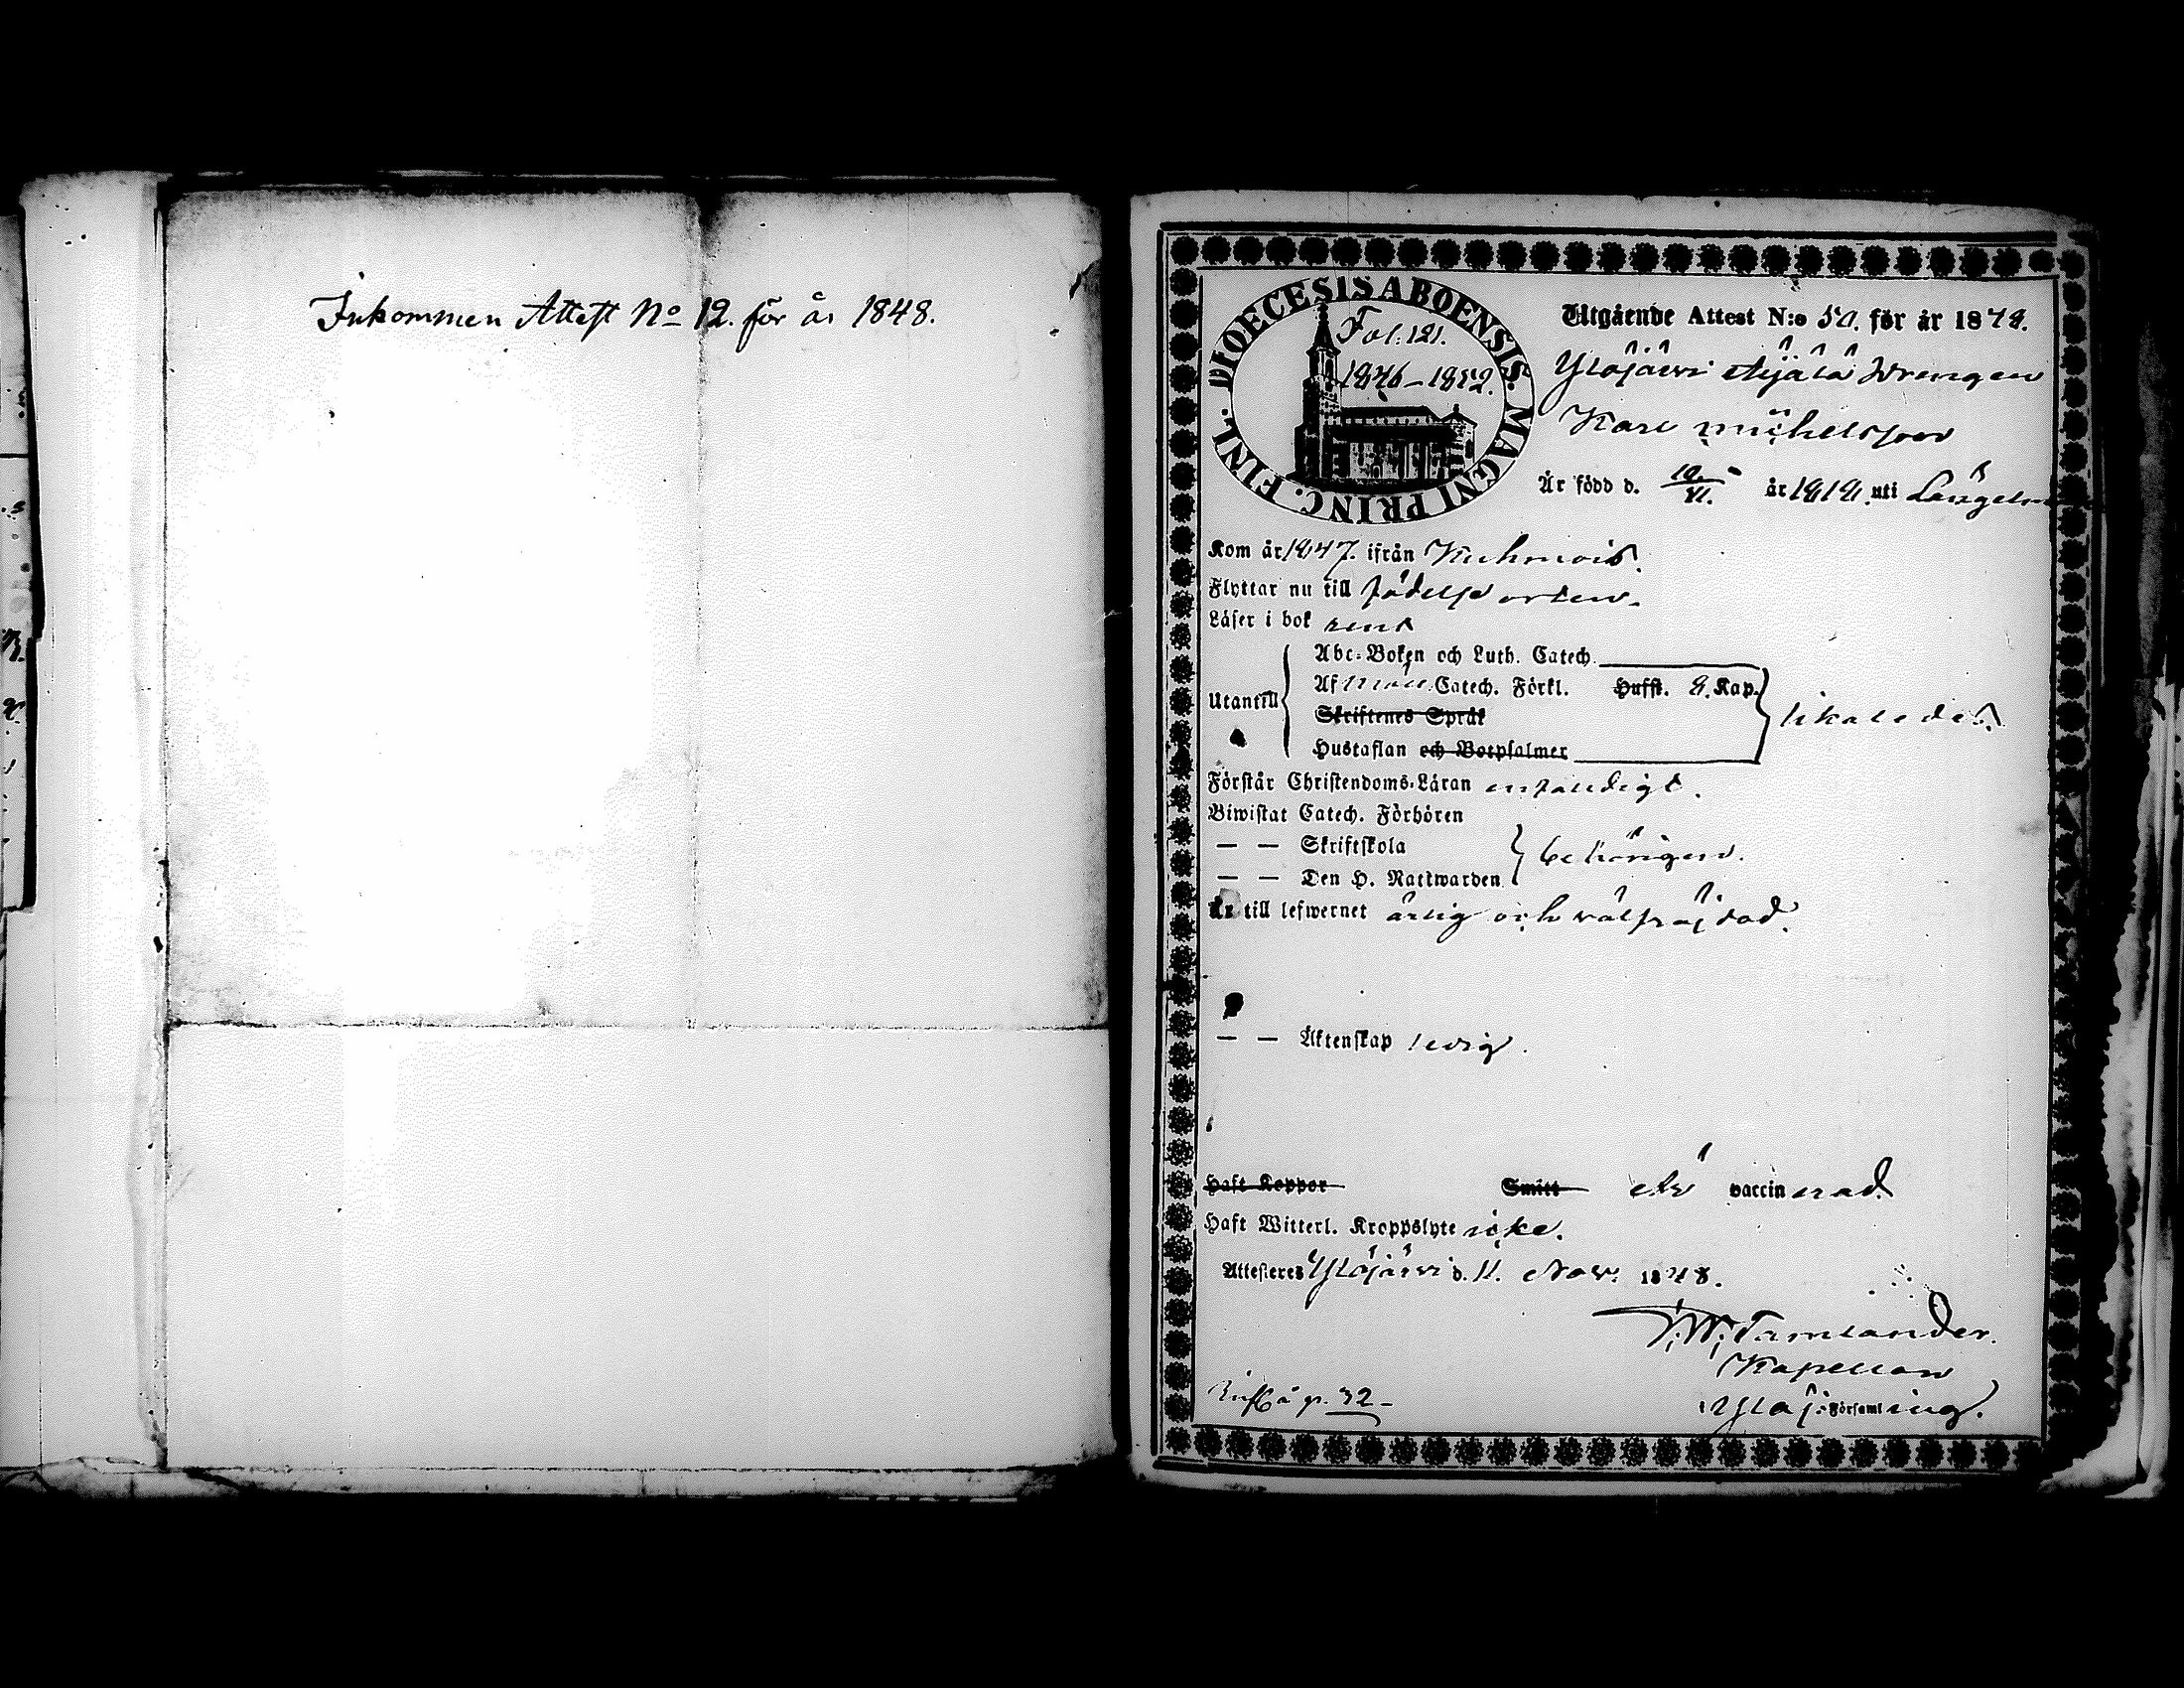 Inkommen Attest No 12. för år 1848.
DIOECESIS ABOENSIS. MAGNI PRINC. FINL.
Fol: 121.
1846-1852.
Utgående Attest N:o 50. för år 1848.
Ylöjärvi Äijälä Drengen
Karl Michelsson
Är född d. 10/11. år 1818 uti Längelm
Kom år 1847. ifrån Kuhmois.
Flyttar nu till födelse orten.
Läser i bok rent
Utantill
Abc-Boken och Luth. Catech.
Af Möll. Catech. Förkl. Husst. 8. Kap.
Skriftenes Språk
Hustaflan och Botpsalmer
likaledes.
Förstår Christendoms-Läran enfaldigt.
Biwistat Catech. Förhören
— — Skriftskola
— — Den H. Nattwarden
behörigen.
Är till lefwernet ärlig och välfräjdad.
— — Äktenskap ledig.
Haft Koppor Smitt Är vaccinerad.
Haft Witterl. Kroppslyte icke.
Attesteres Ylöjärvi d. 11. Nov. 1848.
Tamlander.
Kapellan
i Ylöj: Församling.
p. 32-